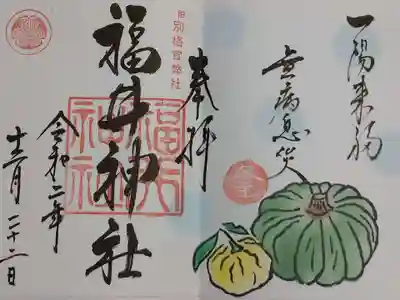 一陽来福
無病息災
奉拝
旧別格官幣社
福井神社
福井神社
令和二年
十二月二十二日